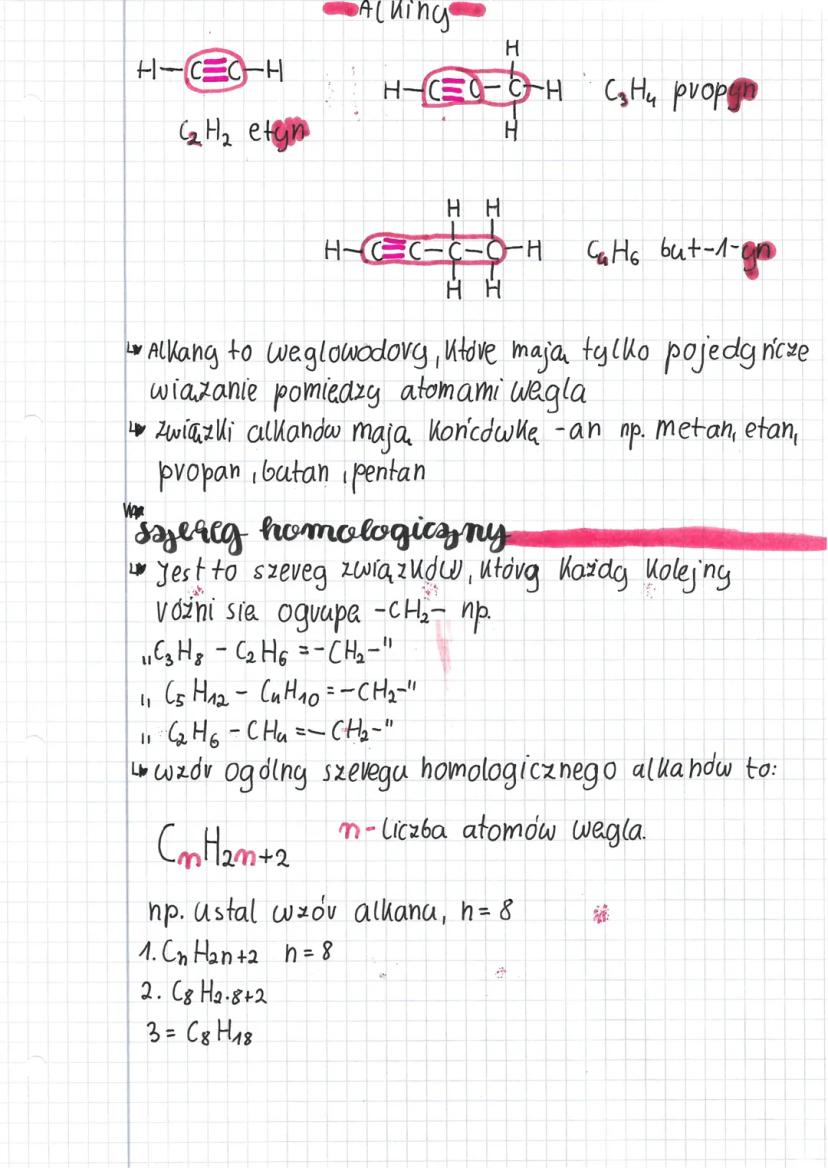 Alkiny
H
H-C≡C-H H-C≡C-C-H C₃H₄ propyn
H
C₂H₂ etyn
H H
H-C≡C-C-C-H C₄H₆ but-1-yn
H H
↳ Alkany to węglowodory, które mają tylko pojedyńcze
wiązanie pomiędzy atomami węgla
↳ związki alkanów mają końcówkę -an np. metan, etan,
propan, butan, pentan
szereg homologiczny
↳ Jest to szereg związków, który każdy kolejny
różni się ogrupę -CH₂- np.
„C₃H₈ - C₂H₆ = -CH₂-"
„ C₅H₁₂ - C₄H₁₀ = -CH₂-"
„ C₂H₆ - CH₄ = -CH₂-"
↳ wzór ogólny szeregu homologicznego alkanów to:
CₙH₂ₙ₊₂ n-liczba atomów węgla.
np. ustal wzór alkanu, n = 8
1. CₙH₂ₙ₊₂ n = 8
2. C₈H₂.₈₊₂
3 = C₈H₁₈